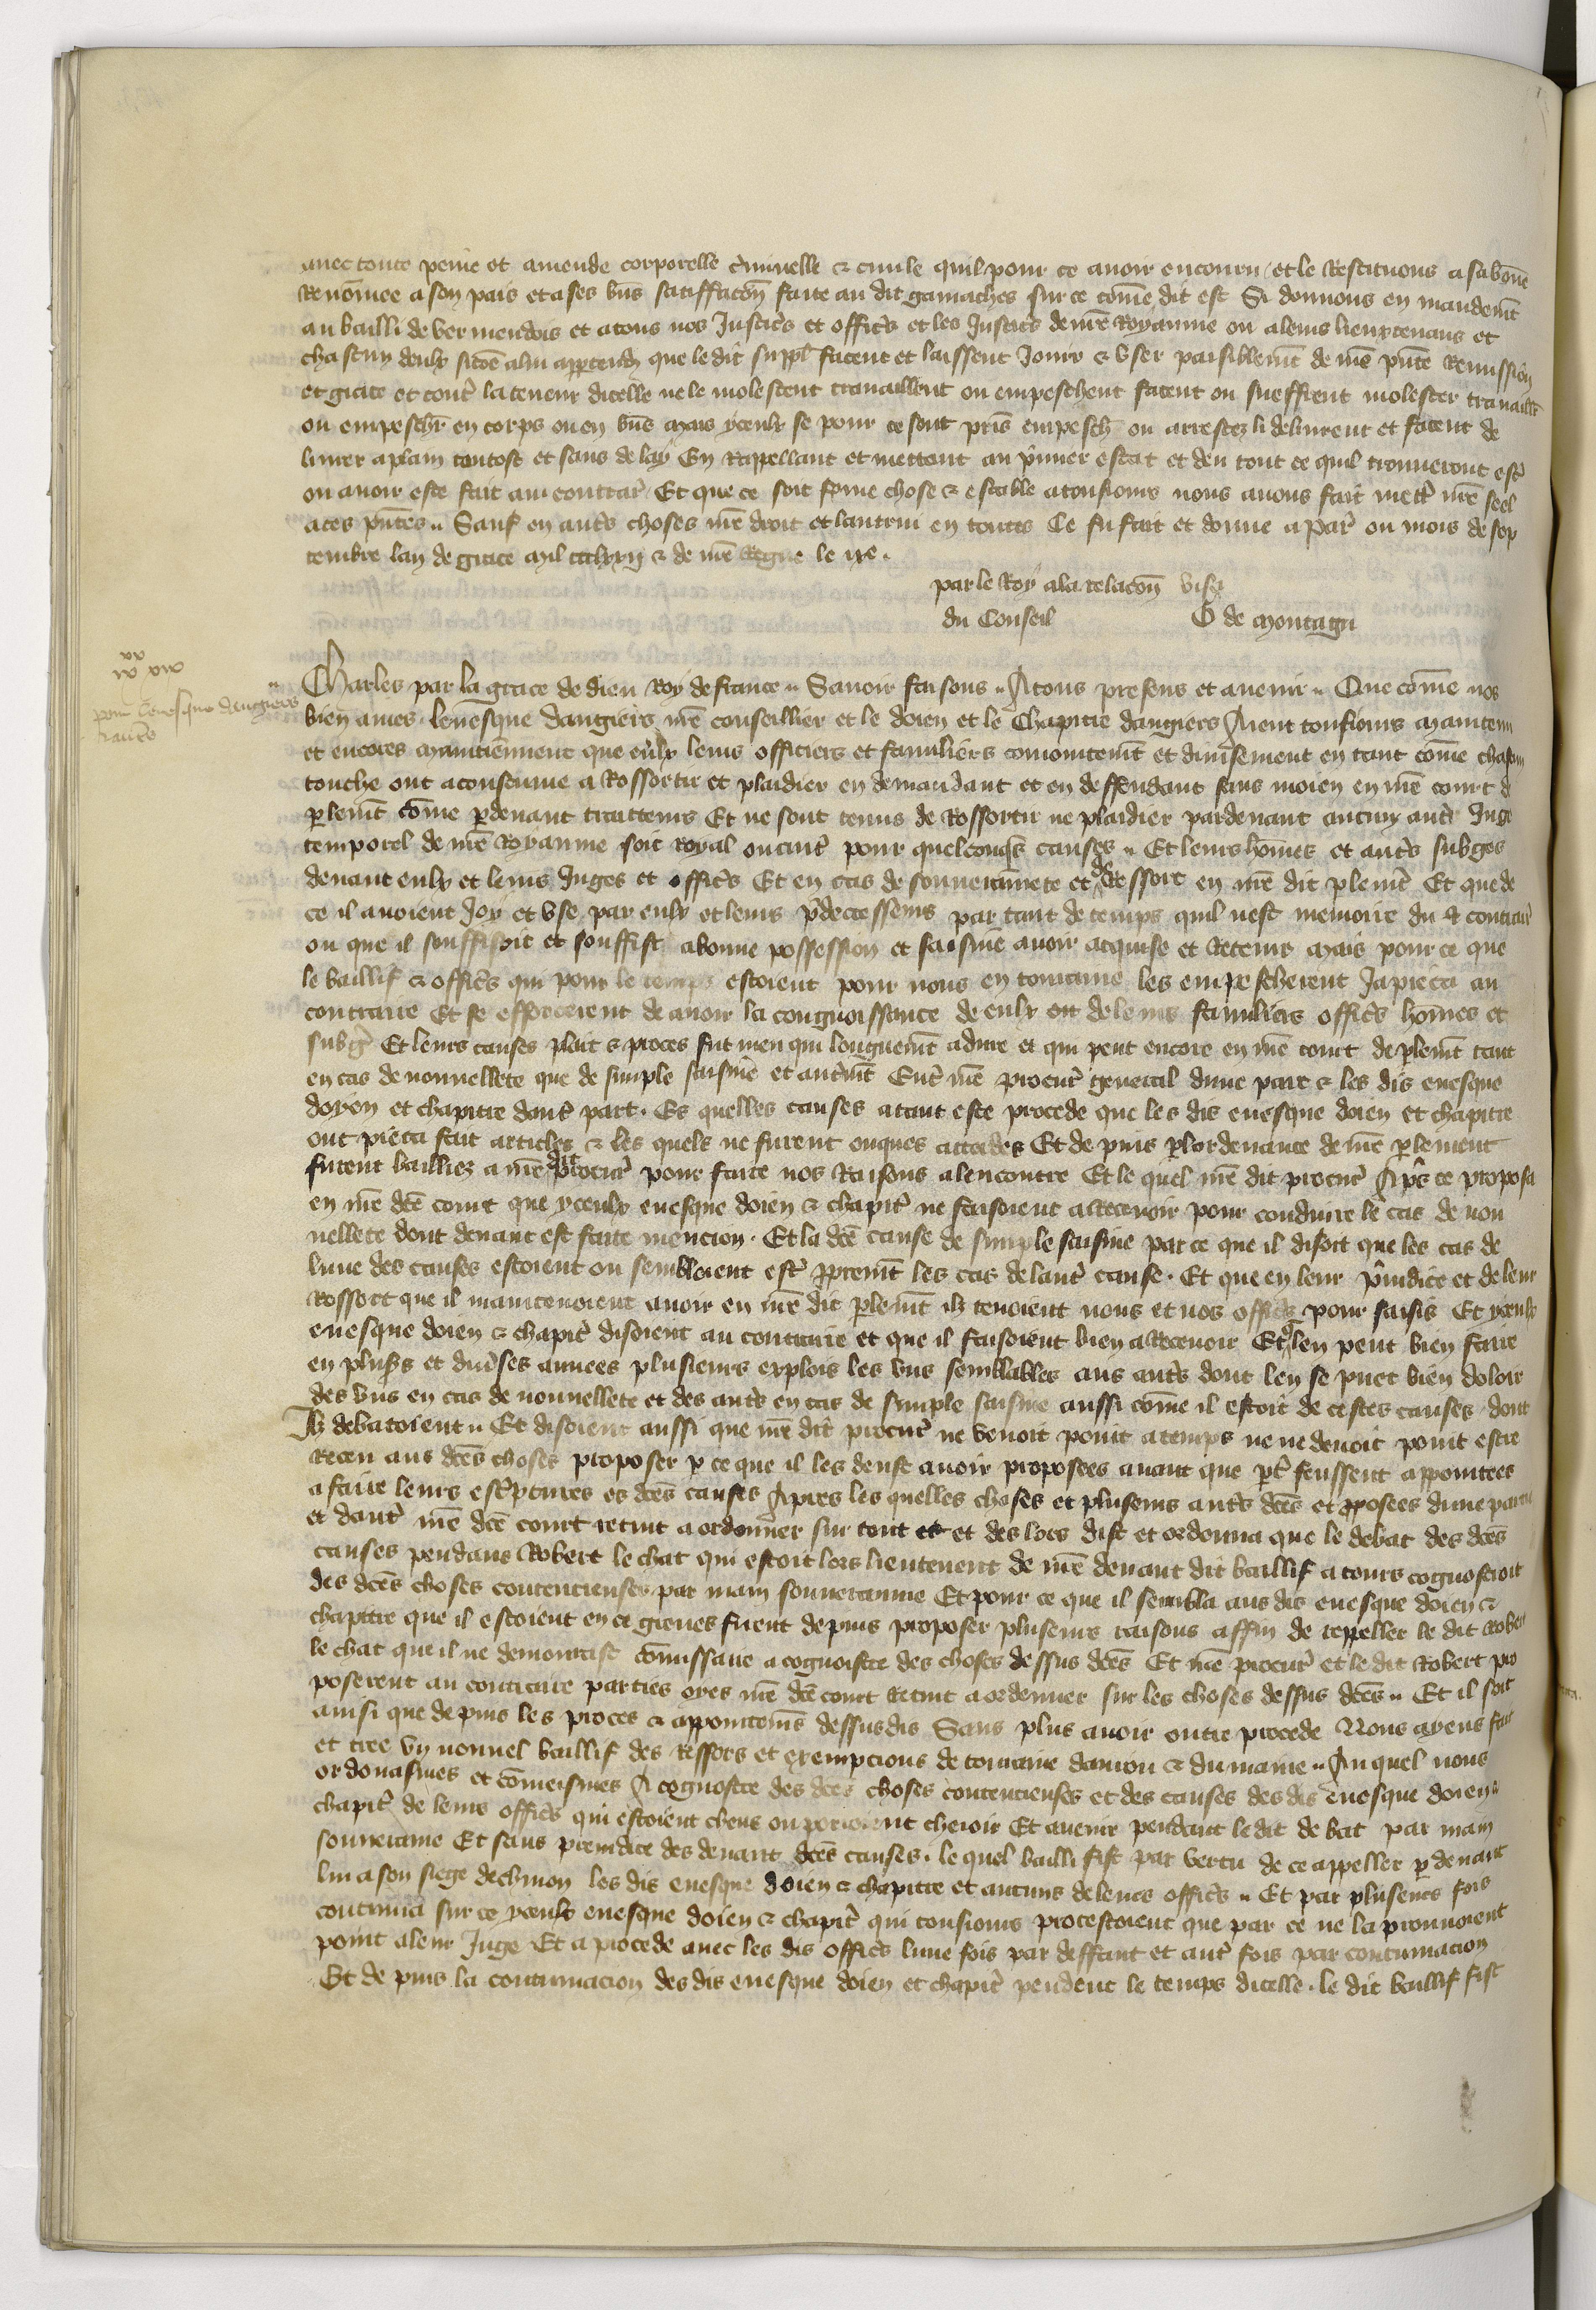 auec toute peine et amende corporelle criminelle & ciuile quil pour ce auoir encouru et le Restituons a sa bonne
Renommee a son pais et a ses biens satiffacon faite au dit gamaches sur ce comme dit est Si donnons en mandement
au bailli de vermendois et a tous nos Justiciers et officiers et les Justiciers de nostre Royaume ou a leurs lieuxtenans et
chascun deulx si come a lui appartendra que le dit suppliant facent et laissent Jouir & vser paisiblement de nostre presente Remission
et grace et contre la teneur dicelle ne le molestent trauaillent ou empeschent facent ou sueffrent molester trauaillier
ou empescher en corps ou en biens mais yceulx se pour ce sont pris empeschiez ou arrestez li deliurent et facent de
liurer a plain tantost et sans delay En Rappellant et mettant au premier estat et deu tout ce quil trouueront estre
ou auoir este fait au contraire Et que ce soit ferme chose & estable a tousiours nous auons fait mettre nostre seel
a ces presentes Sauf en autres choses nostre droit et lautrui en toutes Ce fu fait et donne a Paris ou mois de sep
tembre lan de grace mil ccclxxij & de nostre Regne le ixe.
par le Roy a la relacon visa
du Conseil G de montagu
pour leuesque dangiers
Charles par la grace de dieu Roy de france Sauoir faisons A tous presens et auenir Que comme nos
bien ames leuesque dangiers nostre conseillier et le doien et le Chapitre dangiers Aient tousiours maintenu
et encores maintiennent que eulx leurs officiers et familiers conioinctement et diuisement en tant comme chascun
touche ont acoustume a Rossortir et plaidier en demandant et en deffendant sans moien en nostre court de
parlement comme pardeuant traitteurs Et ne sont tenus de Rossortir ne plaidier pardeuant aucun autre Juge
temporel de nostre Royaume soit Royal ou autre pour quelconques causes Et leurs hommes et autres subges
deuant eulx et leurs Juges et officiers Et en cas de souuerainete et de Ressort en nostre dit parlement Et que de
ce il auoient Joy et vse par eulx et leurs predecesseurs par tant de temps quil nest memoire du contraire
ou que il souffisoit et souffist a bonne possession et saisine auoir acquise et Retenir mais pour ce que
le baillif & officiers qui pour le temps estoient pour nous en touraine les empescherent Ja pieca au
contraire Et se efforcerent de auoir la congnoissance de eulx ou de leurs familiers officiers hommes et
subges Et leurs causes plait & proces fut meu qui longuement a dure et qui pent encore en nostre court de parlement tant
en cas de nouuellete que de simple saisine et autrement Entre nostre procureur general dune part & les dis euesque
doyen et chapitre dautre part. Es quelles causes a tant este procede que les dis euesque doien et chapitre
ont pieca fait articles & les quels ne furent onques accordes Et de puis par lordenance de nostre parlement
furent bailliez a nostre dit procureur pour faire nos Raisons alencontre Et le quel nostre dit procureur Apres ce proposa
en nostre dicte court que yceulx euesque doien & chapitre ne faisoient a Receuoir pour conduire le cas de nou
uellete dont deuant est faite mencion. Et la dicte cause de simple saisine par ce que il disoit que les cas de
lune des causes estoient ou sembloient estre proprement les cas de lautre cause. Et que en leur preiudice et de leur
Rossort que il maintenoient auoir en nostre dit parlement ilz tenoient nous et nos officiers pour saisis Et yceulx
euesque doien & chapitre disoient au contraire et que il faisoient bien a Receuoir Et que len peut bien faire
en plusieurs et diuerses annees plusieurs explois les vns semblables aus autres dont len se puet bien doloir
des vns en cas de nouuellete et des autres en cas de simple saisine aussi comme il estoit de cestes causes dont
Ilz debatoient Et disoient aussi que nostre dit procureur ne venoit point a temps ne ne deuoit point estre
Receu aus dictes choses proposer par ce que il les deust auoir proposees auant que parties feussent appointees
a faire leurs escriptures es dictes causes Apres les quelles choses et plusieurs autres dictes et proposees dune partie
et dautre nostre dicte court retint a ordonner sur tout et des lors dist et ordonna que le debat des dictes
causes pendans Robert le chat qui estoit lors lieutenent de nostre deuant dit baillif a tours cognosceroit
des dictes choses contencieuses par main souueraine Et pour ce que il sembla aus dis euesque doien &
chapitre que il estoient en ce greues firent depuis proposer plusieurs raisons affin de rappeller le dit Robert
le chat que il ne demourast commissaire a cognoistre des choses dessus dictes Et nostre procureur et le dit Robert pro
poserent au contraire parties oyes nostre dicte court Retint a ordenner sur les choses dessus dictes Et il soit
ainsi que depuis les proces & appointemens dessusdis Sans plus auoir oultre procede Nous ayens fait
et cree vn nouuel baillif des Ressors et exempcions de touraine danjou & du maine Au quel nous
ordonasmes et commeismes A cognoistre des dictes choses contencieuses et des causes des dis euesque doien
chapitre de leurs officiers qui estoient cheus ou porroient cheoir Et auenir pendant le dit debat par main
souueraine Et sans preiudice des deuant dictes causes. le quel bailli fist par vertu de ce appeller pardeuant
lui a son siege de chinon les dis euesque doien & chapitre et aucuns de leurs officiers Et par plusieurs fois
continua sur ce yceulx euesque doien & chapitre qui tousiours protestoient que par ce ne la prouuoient
point a leur Juge Et a procede auec les dis officiers lune fois par deffaut et autre fois par continuacion
Et de puis la continuacion des dis euesque doien et chapitre pendent le temps dicelle. le dit baillif fist